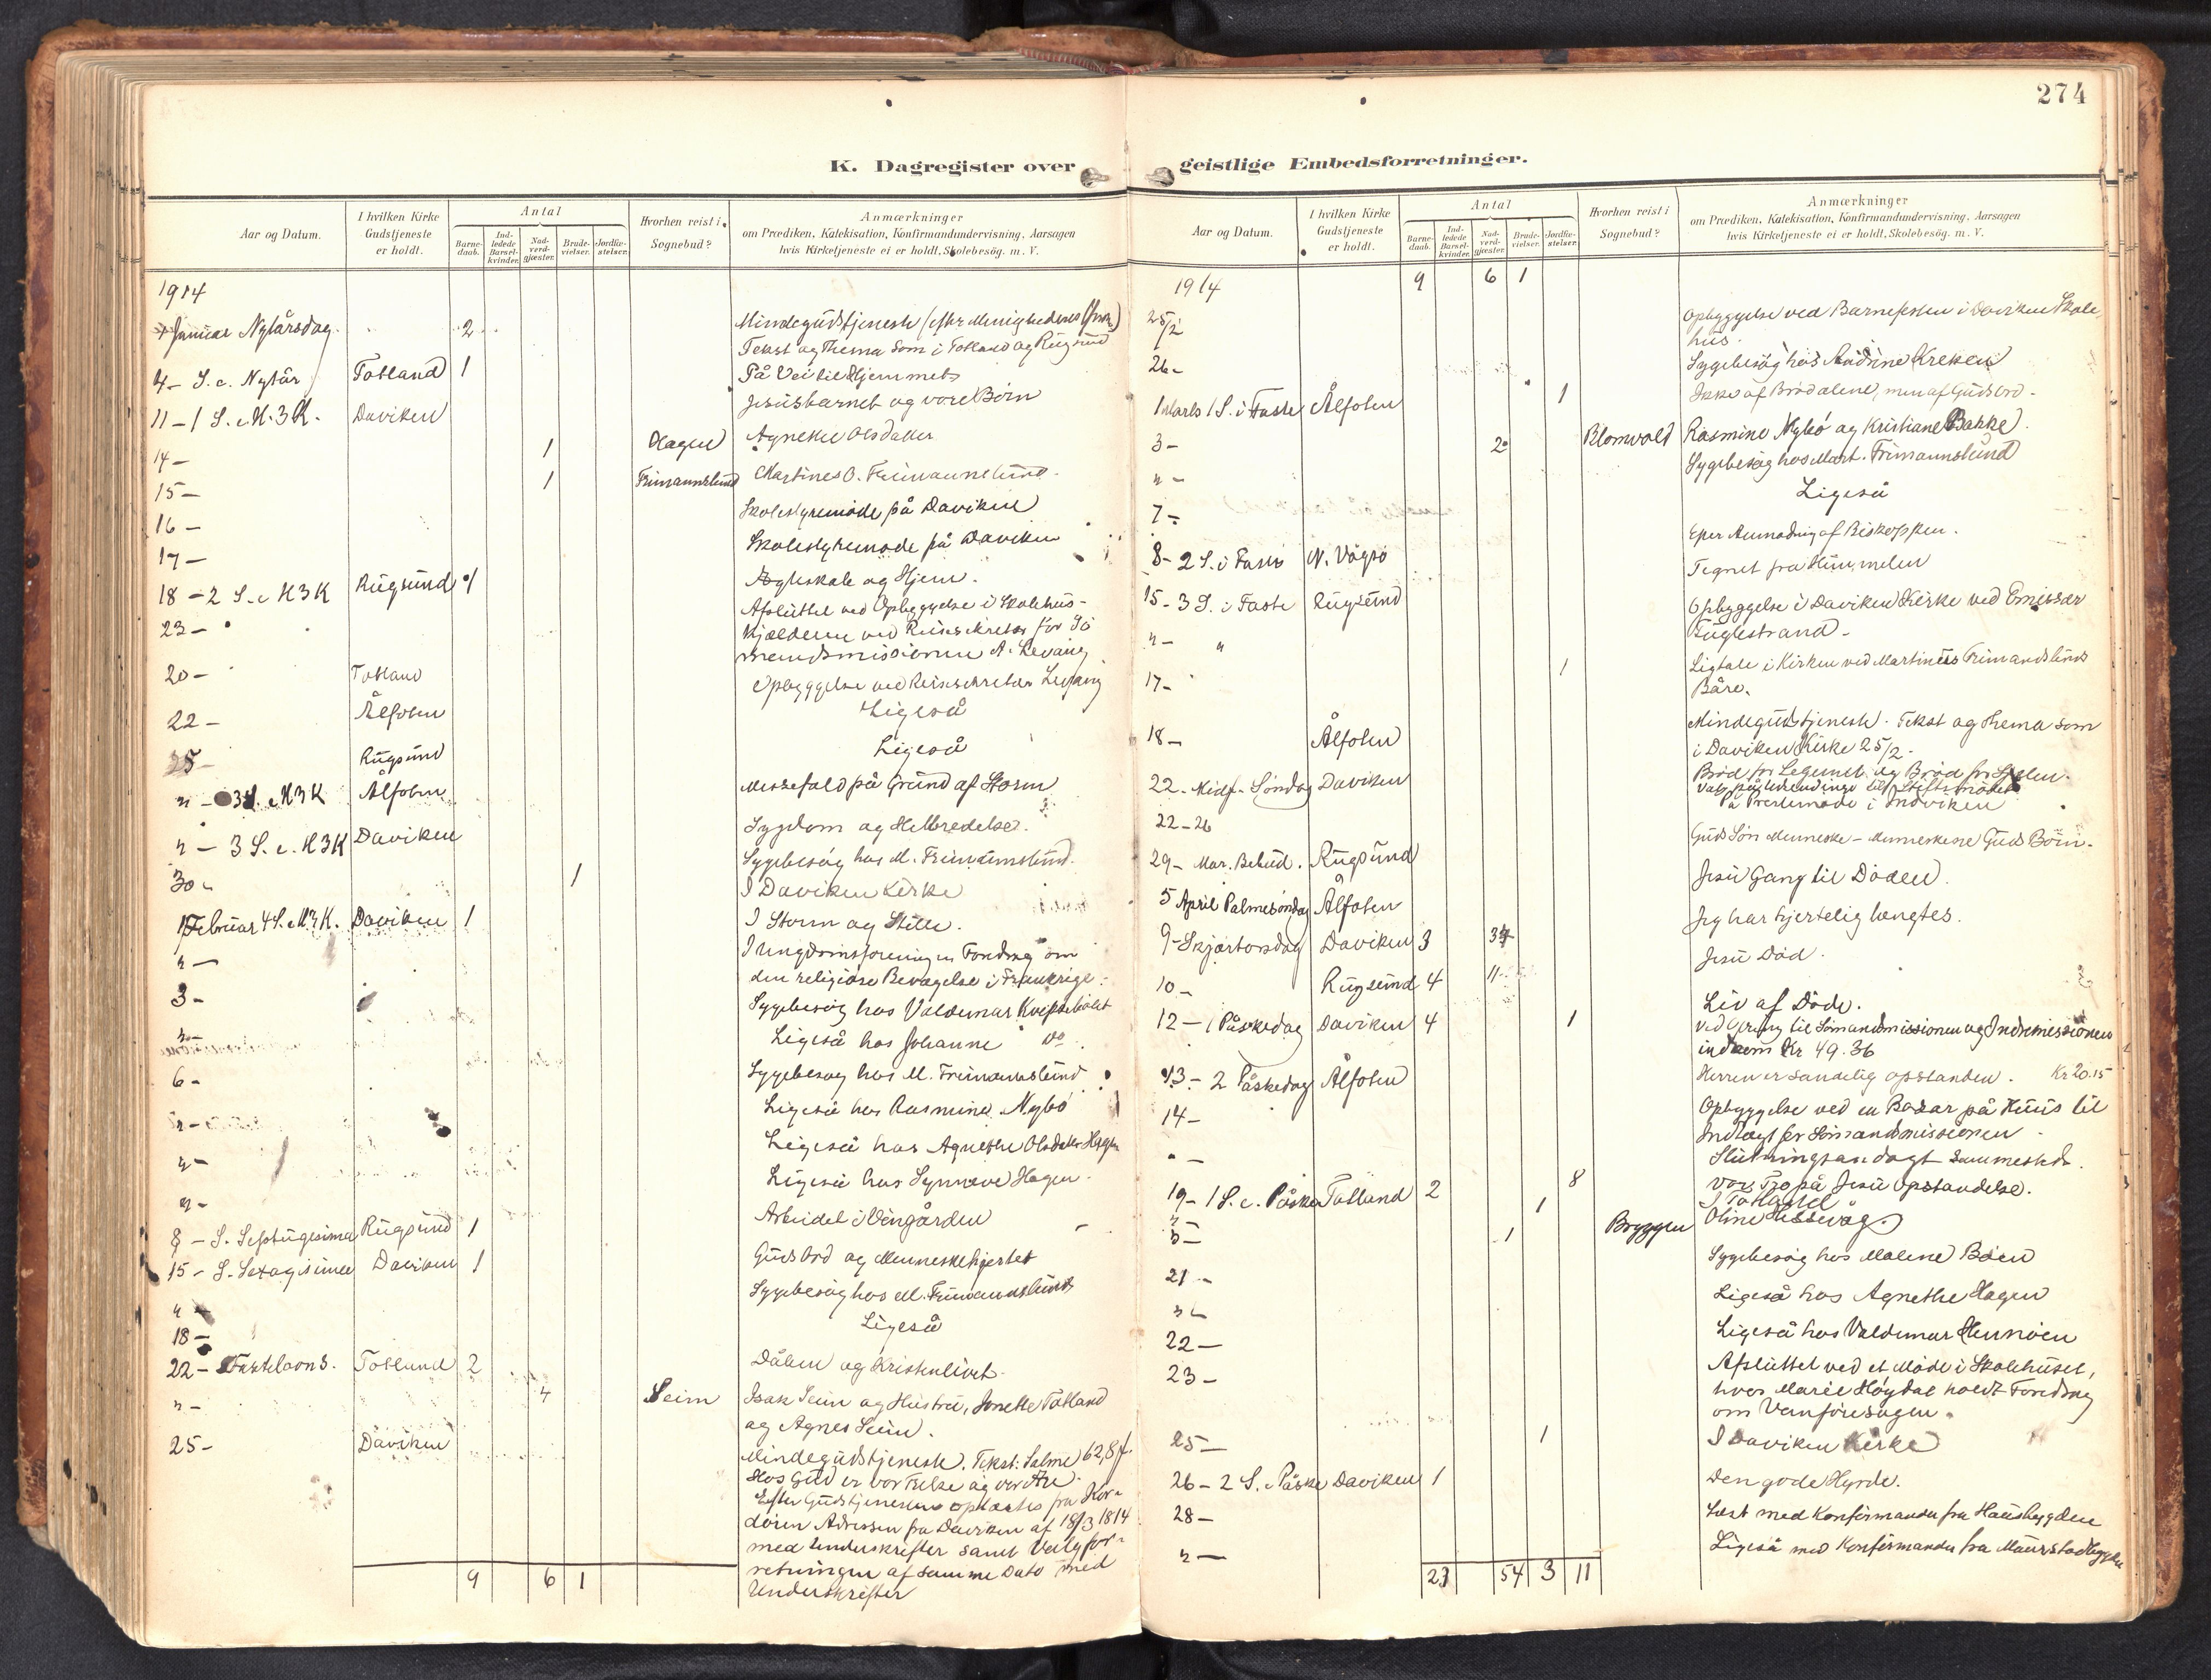 274
K. Dagregister over
geistlige Embedsforretninger.
Aar og Datum.
I hvilken Kirke
Gudstjeneste
er holdt.
Antal
Barne-
daab.
Ind-
ledede
Barsel-
kvinder.
Nad-
verd-
gjæster.
Brude-
vielser.
Jordfæ-
stelser.
Hvorhen reist i
Sognebud?
Anmærkninger
om Prædiken, Katekisation, Konfirmandundervisning, Aarsagen
hvis Kirketjeneste ei er holdt, Skolebesög. m. V.
1914
Januar Nytårsdag. 2 Mindegudstjeneste (efter Menighedens
Tekst og Thema som i Totland og Rugsund
4 - S. e. Nytår Totland 1 På Vei til Hjemmet
11 - 1 S. e. H. 3 K. Daviken Jesusbarnet og vore Börn
14 - 1 Hagen Agnethe Olsdatter
15 - 1 Frimannslund Martines O. Frimannslund.
16 - Skolestyremöde på Daviken
17 - Skolestyremöde på Daviken
18 - 2 S. e H3K Rugsund 1 og Hjem.
23 - Afsluttet ved Opbyggelse i Skolehus-
kjælderen ved Reisesekretær for Sö
mandsmissionen A. Levang
20 - Totland Opbyggelse ved Reisesekretær Levang
22 - Ålfoten Ligeså
25 - Rugsund Ligeså
" - 3 S. e H3K Ålfoten Messefald på Grund af Storm
" - 3 S. e. H3K Daviken Sygdom og Helbredelse.
Sygebesög hos M. Frimannslund.
30 - 1 I Daviken Kirke
1 Februar 4 S. e H3K. Daviken 1 I Storm og Stille.
" - I Ungdomsforeningen Foredrag om
den religiöse Bevægelse i Frankrige.
3 - Sygebesög hos Valdemar
" - Ligeså hos Johanne do.
6 - Sygebesög hos M. Frimannslund
" - Ligeså hos Rasmine Nybö
" - Ligeså hos Agnethe Olsdatter Hagen
" - Ligeså hos Synneve Hagen.
8 - S. Septugesima Rugsund 1 Arbeidet i Vingården
15 - S. Sexagesimæ Daviken 1 Guds Ord og Menneskehjertet
" - Sygebesög hos M. Frimannslund
18 - Ligeså
22 - Fastelavns. Totland 2 Dåben og Kristenlivet.
" - 4 Seim Isak Seim og Hustru, Jonette Totland
og Agnes Seim.
25 - Daviken Mindegudstjeneste. Tekst: Salme 62,8 f.
Hos Gud er vor Frelse og vor Ære.
Efter Gudstjenesten oplæstes fra Kor-
dören Adressen fra Daviken af 18/3 1814
med Underskrifter samt Valgfor-
retningen af samme Dato med
Underskrifter
9 6 1
Aar og Datum.
I hvilken Kirke
Gudstjeneste
er holdt.
Antal
Barne-
daab.
Ind-
ledede
Barsel-
kvinder.
Nad-
verd-
gjæster.
Brude-
vielser.
Jordfæ-
stelser.
Hvorhen reist i
Sognebud?
Anmærkninger
om Prædiken, Katekisation, Konfirmandundervisning, Aarsagen
hvis Kirketjeneste ei er holdt, Skolebesög. m. V.
1914 9 6 1
25/2 Opbyggelse ved Barnefesten i Daviken Skole
hus.
26 - Sygebesög hos Kreken
1 Marts 1 S. i Faste Ålfoten 1 Ikke af Bröd alene, men af Guds Ord.
3 - 2 Blomvold Rasmine Nybö og Kristiane Bakke.
" - Sygebesög hos Mart. Frimannslund
7 - Ligeså
8 - 2 S. i Faste N. Vågsö Efter Anmodning af Biskoppen.
15 - 3 S. i Faste Rugsund Tegnet fra Himmelen
" - " Opbyggelse i Daviken Kirke ved Emissær
Fuglestrand.
17 - 1 Ligtale i Kirken ved Martines Frimandslunds
Båre.
18 - Ålfoten Mindegudstjeneste. Tekst og Thema som
i Daviken Kirke 25/2.
22 - Midf. Söndag Daviken Bröd for Legemet og Bröd for Sjælen.
Valg på til Stiftsmödet
22 - 26 På Prestemöde i Indviken
29 - Mar. Bebud. Rugsund Guds Sön Menneske - Menneskene Guds Börn.
5 April Palmesöndag Ålfoten Jesu Gang til Döden.
9 - Skjærtorsdag Daviken 3 34 Jeg har hjertelig længtes.
10 - Rugsund 4 11 Jesu Död.
12 - 1 Påskedag Daviken 4 1 Liv af Döde.
Ved Ofring til Sömandsmissionen og Indremissionen
indkom Kr 49.36
13 - 2 Påskedag Ålfoten Herren er sandelig opstanden. Kr 20.15
14 - Opbyggelse ved en Basar på Huus til
Indtægt for Sömandsmissionen
" - Slutningsandagt sammesteds.
19 - 1 S. e. Påske Totland 2 8 Vor Tro på Jesu Opstandelse.
" - 1 I Totland
" - 1 Bryggen Oline Hessevåg.
21 - Sygebesög hos Malene Böen
" - Ligeså hos Agnethe Hagen
22 - Ligeså hos Valdemar Hennöen
23 - Afsluttet ved et Möde i Skolehuset,
hvor Marie Höydal holdt Foredrag
om Vanföresagen.
25 - 1 I Daviken Kirke
26 - 2 S. e Påske Daviken 1 Den gode Hyrde.
28 - Læst med Konfirmander fra Hausbygden
" - Ligeså med Konfirmander fra Maurstadbygden
23 54 3 11